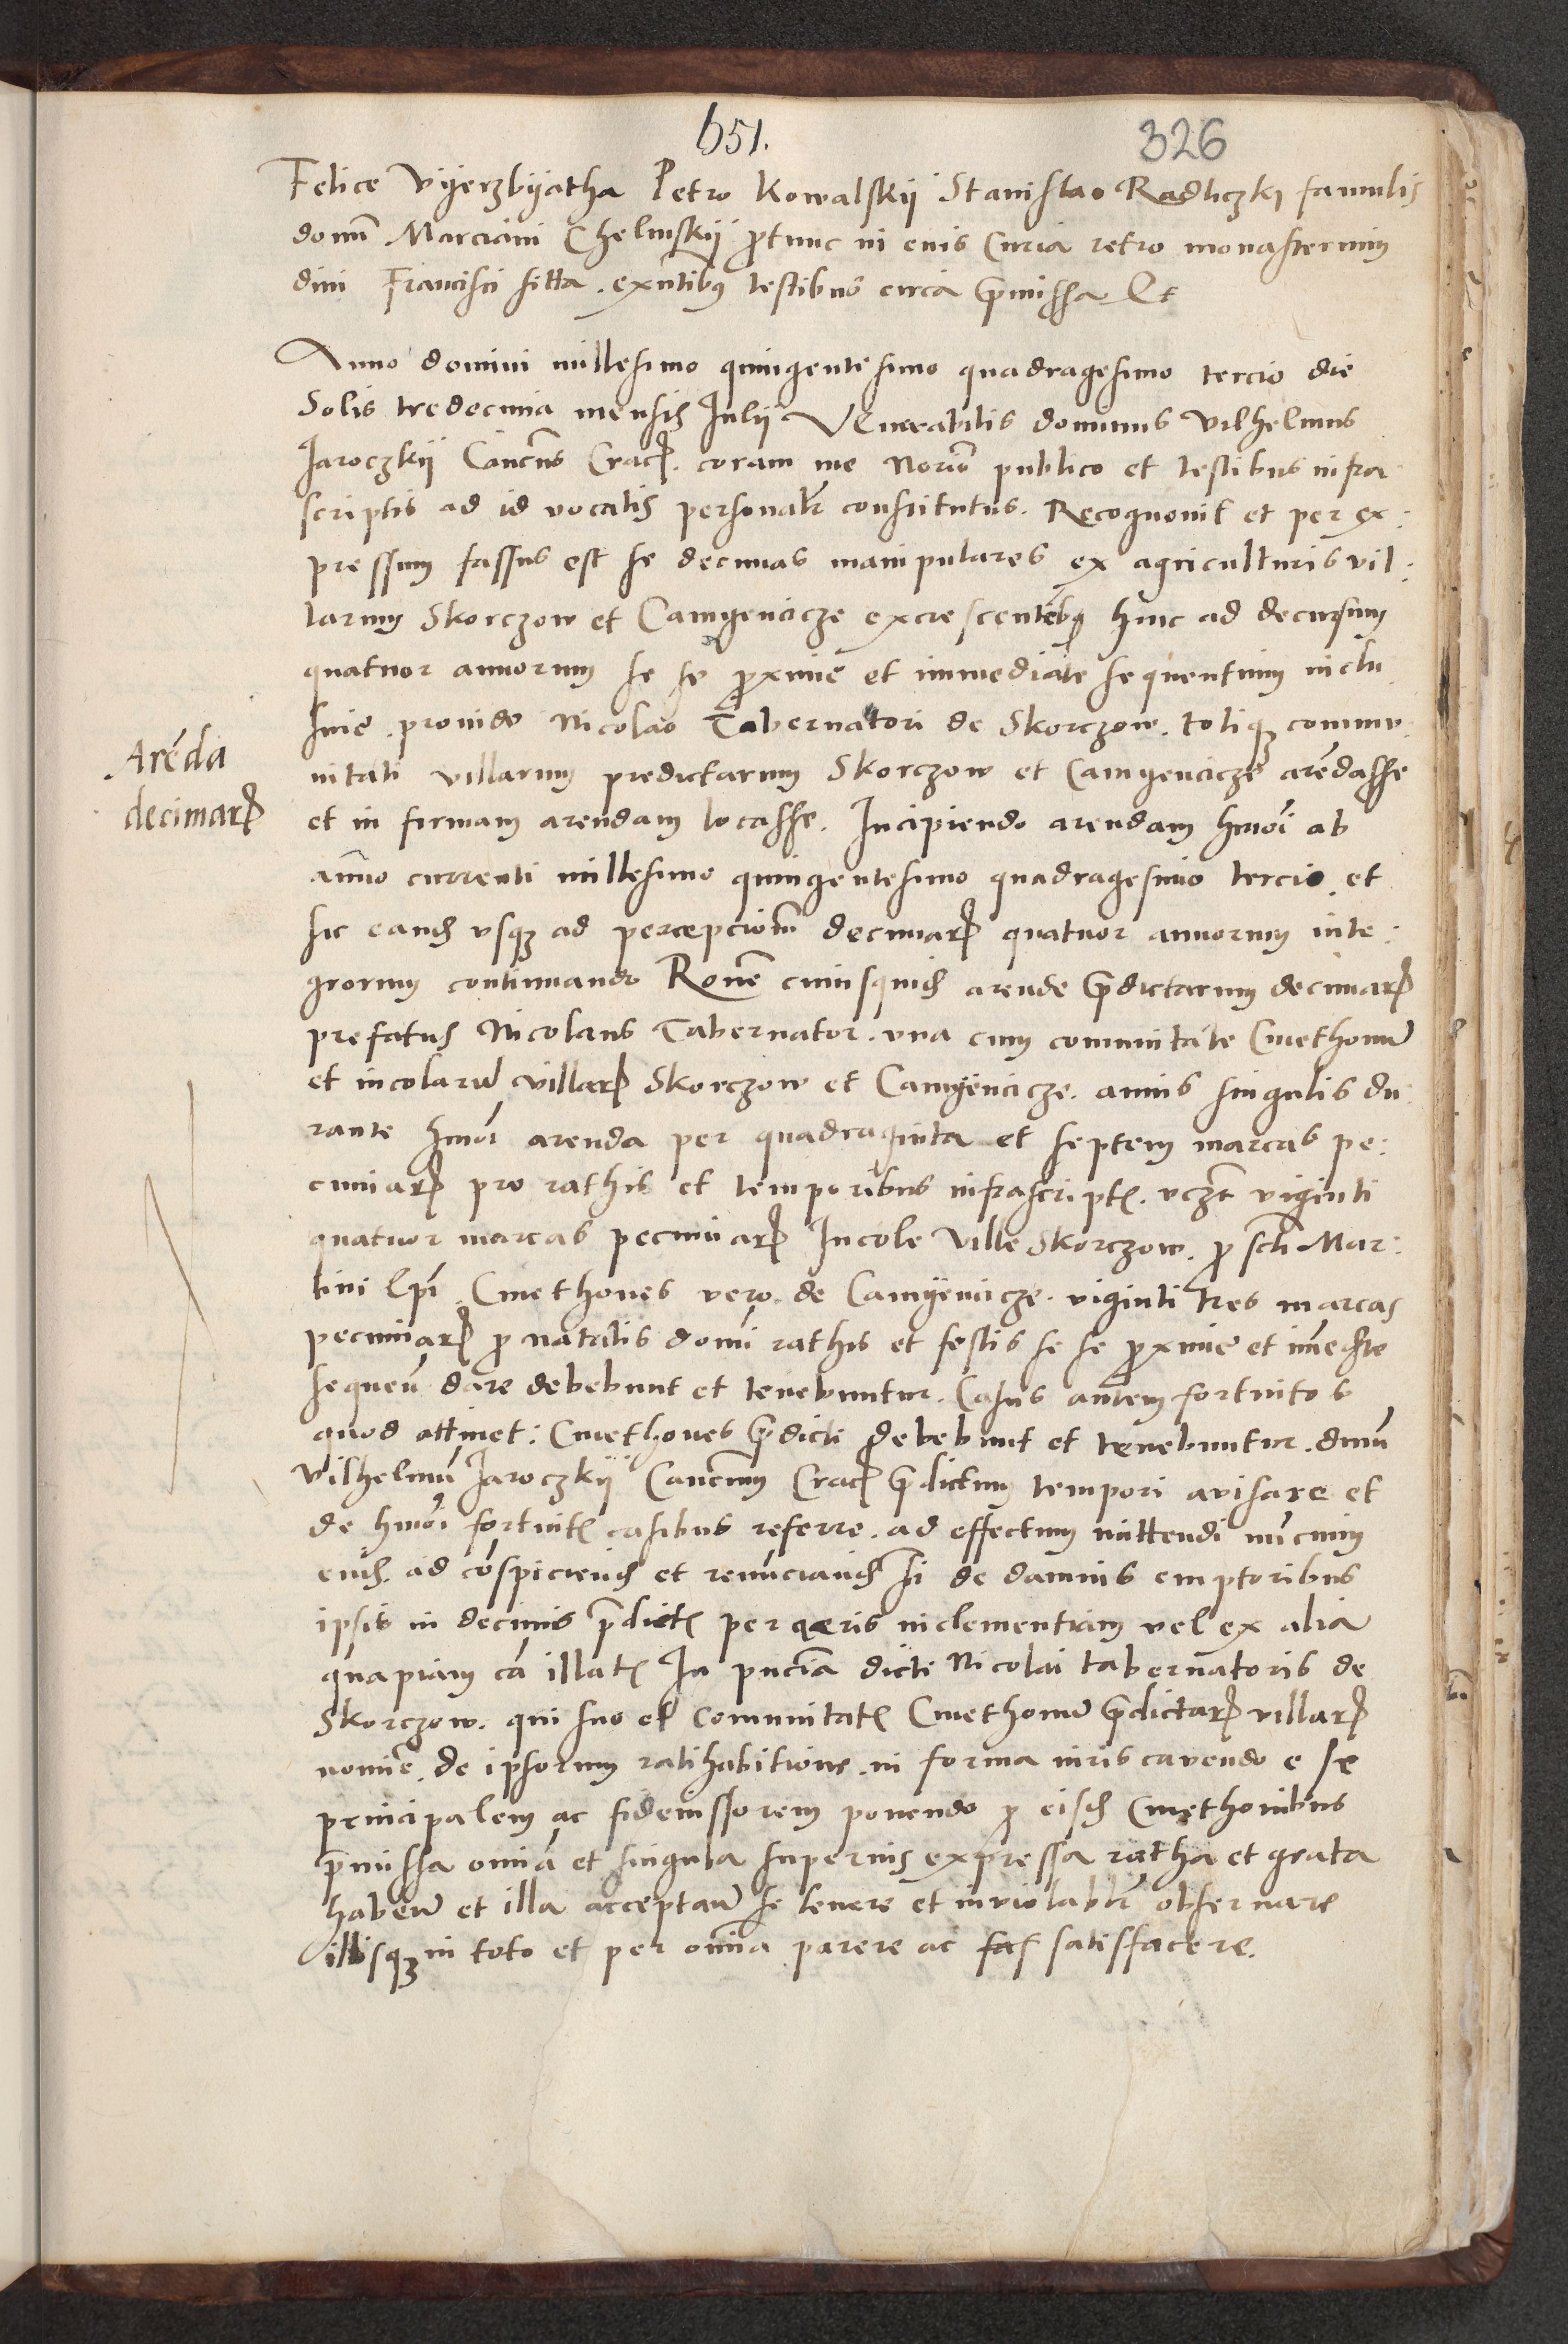 651.
326
Felice Vyerzbyatha Petro Kowalskÿ Stanislao Radliczki famulis
domī Marciani Chelmskÿ ꝓtunc in eius Curia retro monasterium
diui Francisci sitta. exn̄tibus testibus circa p̄missa Et
Anno domini millesimo quingentesimo quadragesimo tercio die
Solis tredecima mensis Julii Venerabilis dominus Vilhelmus
Jaroczkÿ Canc̄us Crac̄. coram me Norīo publico et testibus infra
scriptis ad id vocatis personalr̄ constitutus. Recognouit et per ex:
pressum fassus est se decimas manipulares ex agriculturis vil:
larum Skorczow et Camyencicze excrescentibus hinc ad decursum
quatuor annorum se se ꝓxime et immediate sequentium inclu
siue. prouido Nicolao Tabernatori de Skorczow. totiqꝫ commu
nitati villarum predictarum Skorczow et Camyencicze arēdasse
Arēda
decimarꝝ
et in firmam arendam locasse. Incipiendo arendam hmōi ab
anno currenti millesimo quingentesimo quadragesimo tercio. et
sic eand̄ vsqꝫ ad percepcionē decimarꝝ quatuor annorum inte:
grorum continuando Ronē cuiusquid̄ arende p̄dictarum decimarꝝ
prefatus Nicolaus Tabernator. vna cum comunitate Cmethonū
et incolarū villarꝝ Skorczow et Camÿencicze. annis singulis du
rante hmōi arenda per quadraginta et septem marcas pe:
cuniarꝝ pro rathis et temporibus infrascriptꝭ. vczt̄ viginti
quatuor marcas pecuniarꝝ Incole Ville Skorczow. ꝓ sctī Mar:
tini Epī. Cmethones vero de Camÿencicze. viginti tres marcas
pecuniarꝝ ꝓ natalis domī rathis et festis se se ꝓxime et imēdte
sequen̄ dare debebunt et tenebuntur. Casus autem fortuitos
quod attinet: Cmethones p̄dicti debebunt et tenebuntur. dnūm
Vilhelmū Jaroczkÿ Canc̄um Crac̄ p̄dictum tempori avisare et
de hmōi fortuitꝭ casibus referre. ad effectum mittendi nūcium
eiusd̄. ad cōspiciend̄ et renūciand̄ Si de damnis emptoribus
ipsis in decimis p̄dictꝭ per aeris inclementiam vel ex alia
quapiam cā illatꝭ In pn̄cia dicti Nicolai tabernatoris de
Skorczow. qui suo et Comunitatꝭ Cmethonū p̄dictarꝝ villarꝝ
nomīe. de ipsorum ratihabitione. in forma iuris cavendo e se
principalem ac fideiussorem ponendo ꝓ eisd̄ Cmethonibus
p̄missa omīa et singula superius expressa ratha et grata
haben̄ et illa acceptan̄ se tenere et inviolablr̄ obseruare
illisqꝫ in toto et per omnia parere ac satisfacere.